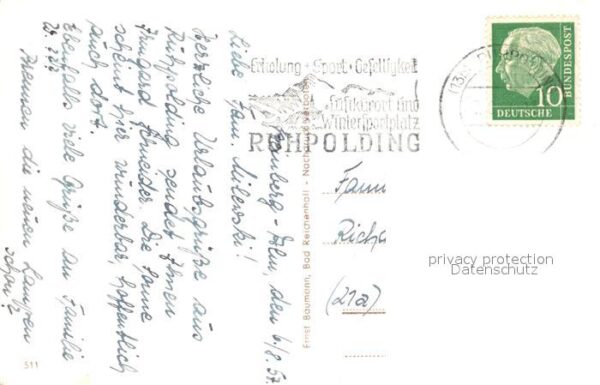 Erholung • Sport • Geselligkeit
Luftkurort und
Wintersportplatz
RUHPOLDING
DEUTSCHE
BUNDESPOST
10
den 6/8.57
Liebe Fam. Milewski!
Herzliche Urlaubsgrüße aus
Ruhpolding sendet Ihnen
Irmgard Schneider. Die Sonne
scheint hier wunderbar, hoffentlich
auch dort.
Ebenfalls viele Grüße an Familie
Brennen die neuen Lampen
schon?
Ernst Baumann, Bad Reichenhall - Nachdruck verboten
Fam
Richa
(21a)
privacy protection
Datenschutz
511